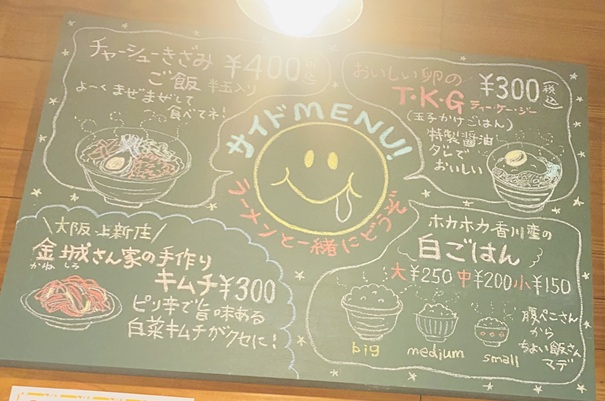 チャーシューきざみ ¥400 税込
ご飯 半玉入り
よ〜く まぜまぜして
食べてネ!
おいしい卵の
T・K・G ティーケージー ¥300 税込
(玉子かけごはん)
特製醤油
ダレで
おいしい
サイドMENU!
ラーメンと一緒にどうぞ
大阪 上新庄
金城さん家の手作り
かねしろ
キムチ ¥300
ピリ辛で旨味ある
白菜キムチがクセに!
ホカホカ香川産の
白ごはん
大¥250 中¥200 小¥150
big medium small
腹ペこさん
から
ちょい飯さん
マデ